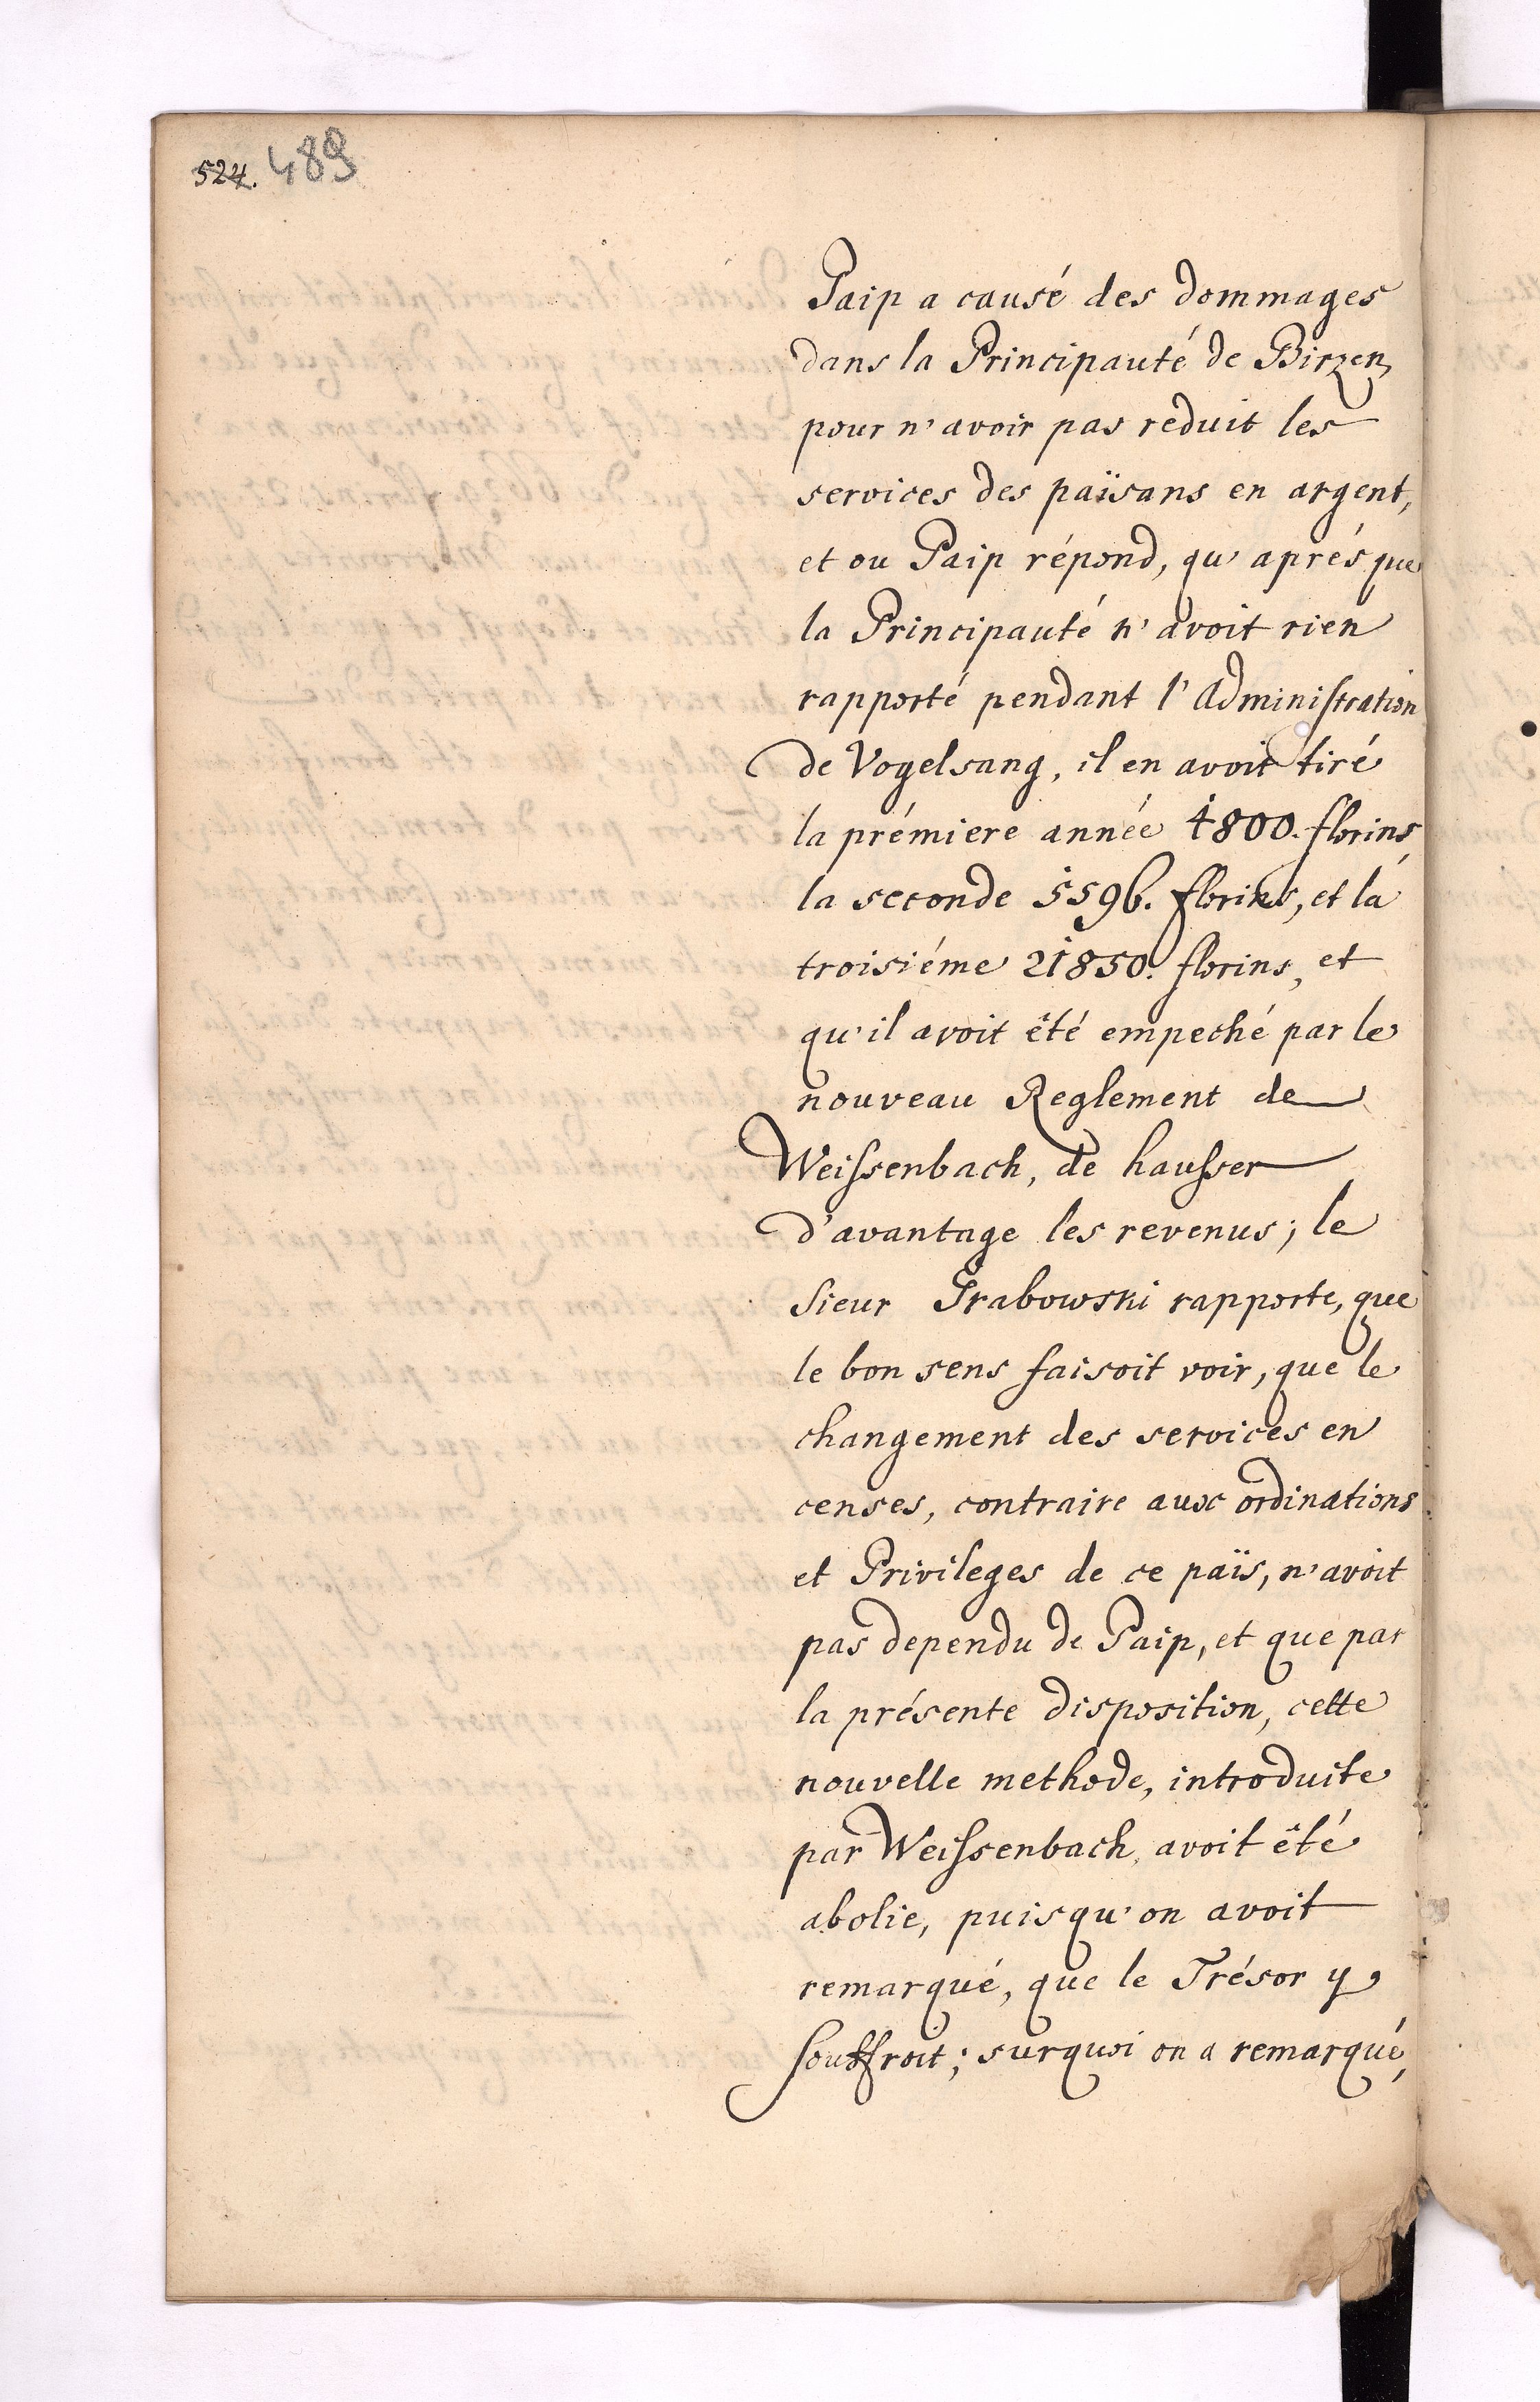 524. 489
Paip a causé des dommages
dans la Principauté de Birzen,
pour n'avoir pas reduit les
services des païsans en argent,
et ou Paip répond, qu'aprés que
la Principauté n'avoit rien
rapporté pendant l'Administration
de Vogelsang, il en avoit tiré
la prémiere année 4800. florins,
la seconde 5596. florins, et la
troisiéme 21850. florins, et
qu'il avoit êté empeché par le
nouveau Reglement de
Weissenbach, de hausser
d'avantage les revenus; le
Sieur Grabowski rapporte, que
le bon sens faisoit voir, que le
changement des services en
censes, contraire aux ordinations
et Privileges de ce païs, n'avoit
pas dependu de Paip, et que par
la présente disposition, cette
nouvelle methode, introduite
par Weissenbach, avoit êté
abolie, puisqu'on avoit
remarqué, que le Trésor y
souffroit; surquoi on a remarqué,